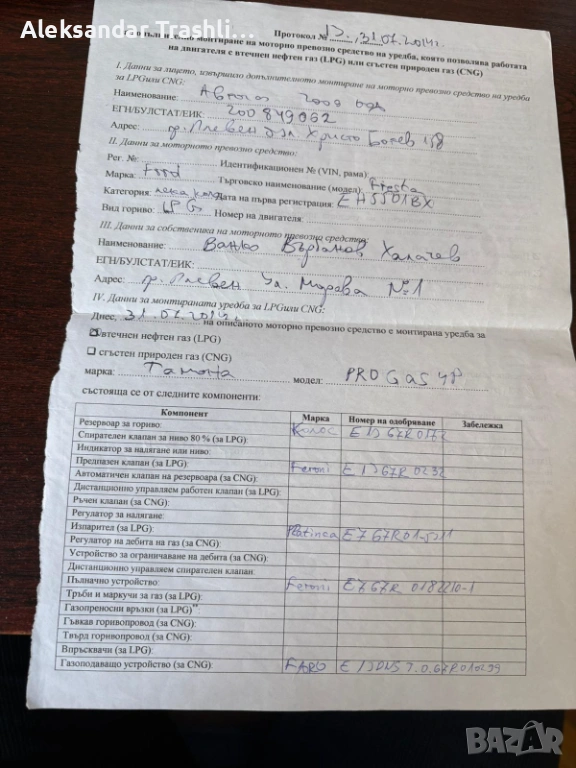 Aleksandar Trashli...
Протокол № 13, 31.07.2014г.
монтиране на моторно превозно средство на уредба, която позволява работата
на двигателя с втечнен нефтен газ (LPG) или сгъстен природен газ (CNG)
I. Данни за лицето, извършило допълнителното монтиране на моторно превозно средство на уредба
за LPGили CNG:
Наименование: Автогаз 2000 оод
ЕГН/БУЛСТАТ/ЕИК: 200849062
Адрес: гр. Плевен ул. Христо Ботев 158
II. Данни за моторното превозно средство:
Рег. № Идентификационен № (VIN, рама):
Марка: Ford Търговско наименование (модел): Fiesta
Категория: лека кола Дата на първа регистрация: EH5501BX
Вид гориво: LPG Номер на двигателя:
III. Данни за собственика на моторното превозно средство:
Наименование: Ванко Върбанов Халачев
ЕГН/БУЛСТАТ/ЕИК:
Адрес: гр. Плевен Ул. Морава №1
IV. Данни за монтираната уредба за LPGили CNG:
Днес, 31.07.2014г. на описаното моторно превозно средство е монтирана уредба за
втечнен нефтен газ (LPG)
сгъстен природен газ (CNG)
марка: Тамона модел: PRO GAS
състояща се от следните компоненти:
Компонент Марка Номер на одобряване Забележка
Резервоар за гориво:
Спирателен клапан за ниво 80 % (за LPG):
Индикатор за налягане или ниво:
Предпазен клапан (за LPG): E13 67R 0232
Автоматичен клапан на резервоара (за CNG):
Дистанционно управляем работен клапан (за LPG):
Ръчен клапан (за CNG):
Регулатор на налягане:
Изпарител (за LPG):
Регулатор на дебита на газ (за CNG):
Устройство за ограничаване на дебита (за CNG):
Дистанционно управляем спирателен клапан:
Пълначно устройство: E7 67R
Тръби и маркучи за газ (за LPG):
Газопреносни връзки (за LPG)**:
Гъвкав горивопровод (за CNG):
Твърд горивопровод (за CNG):
Впръсквачи (за LPG):
Газоподаващо устройство (за CNG): FARO
BAZAR